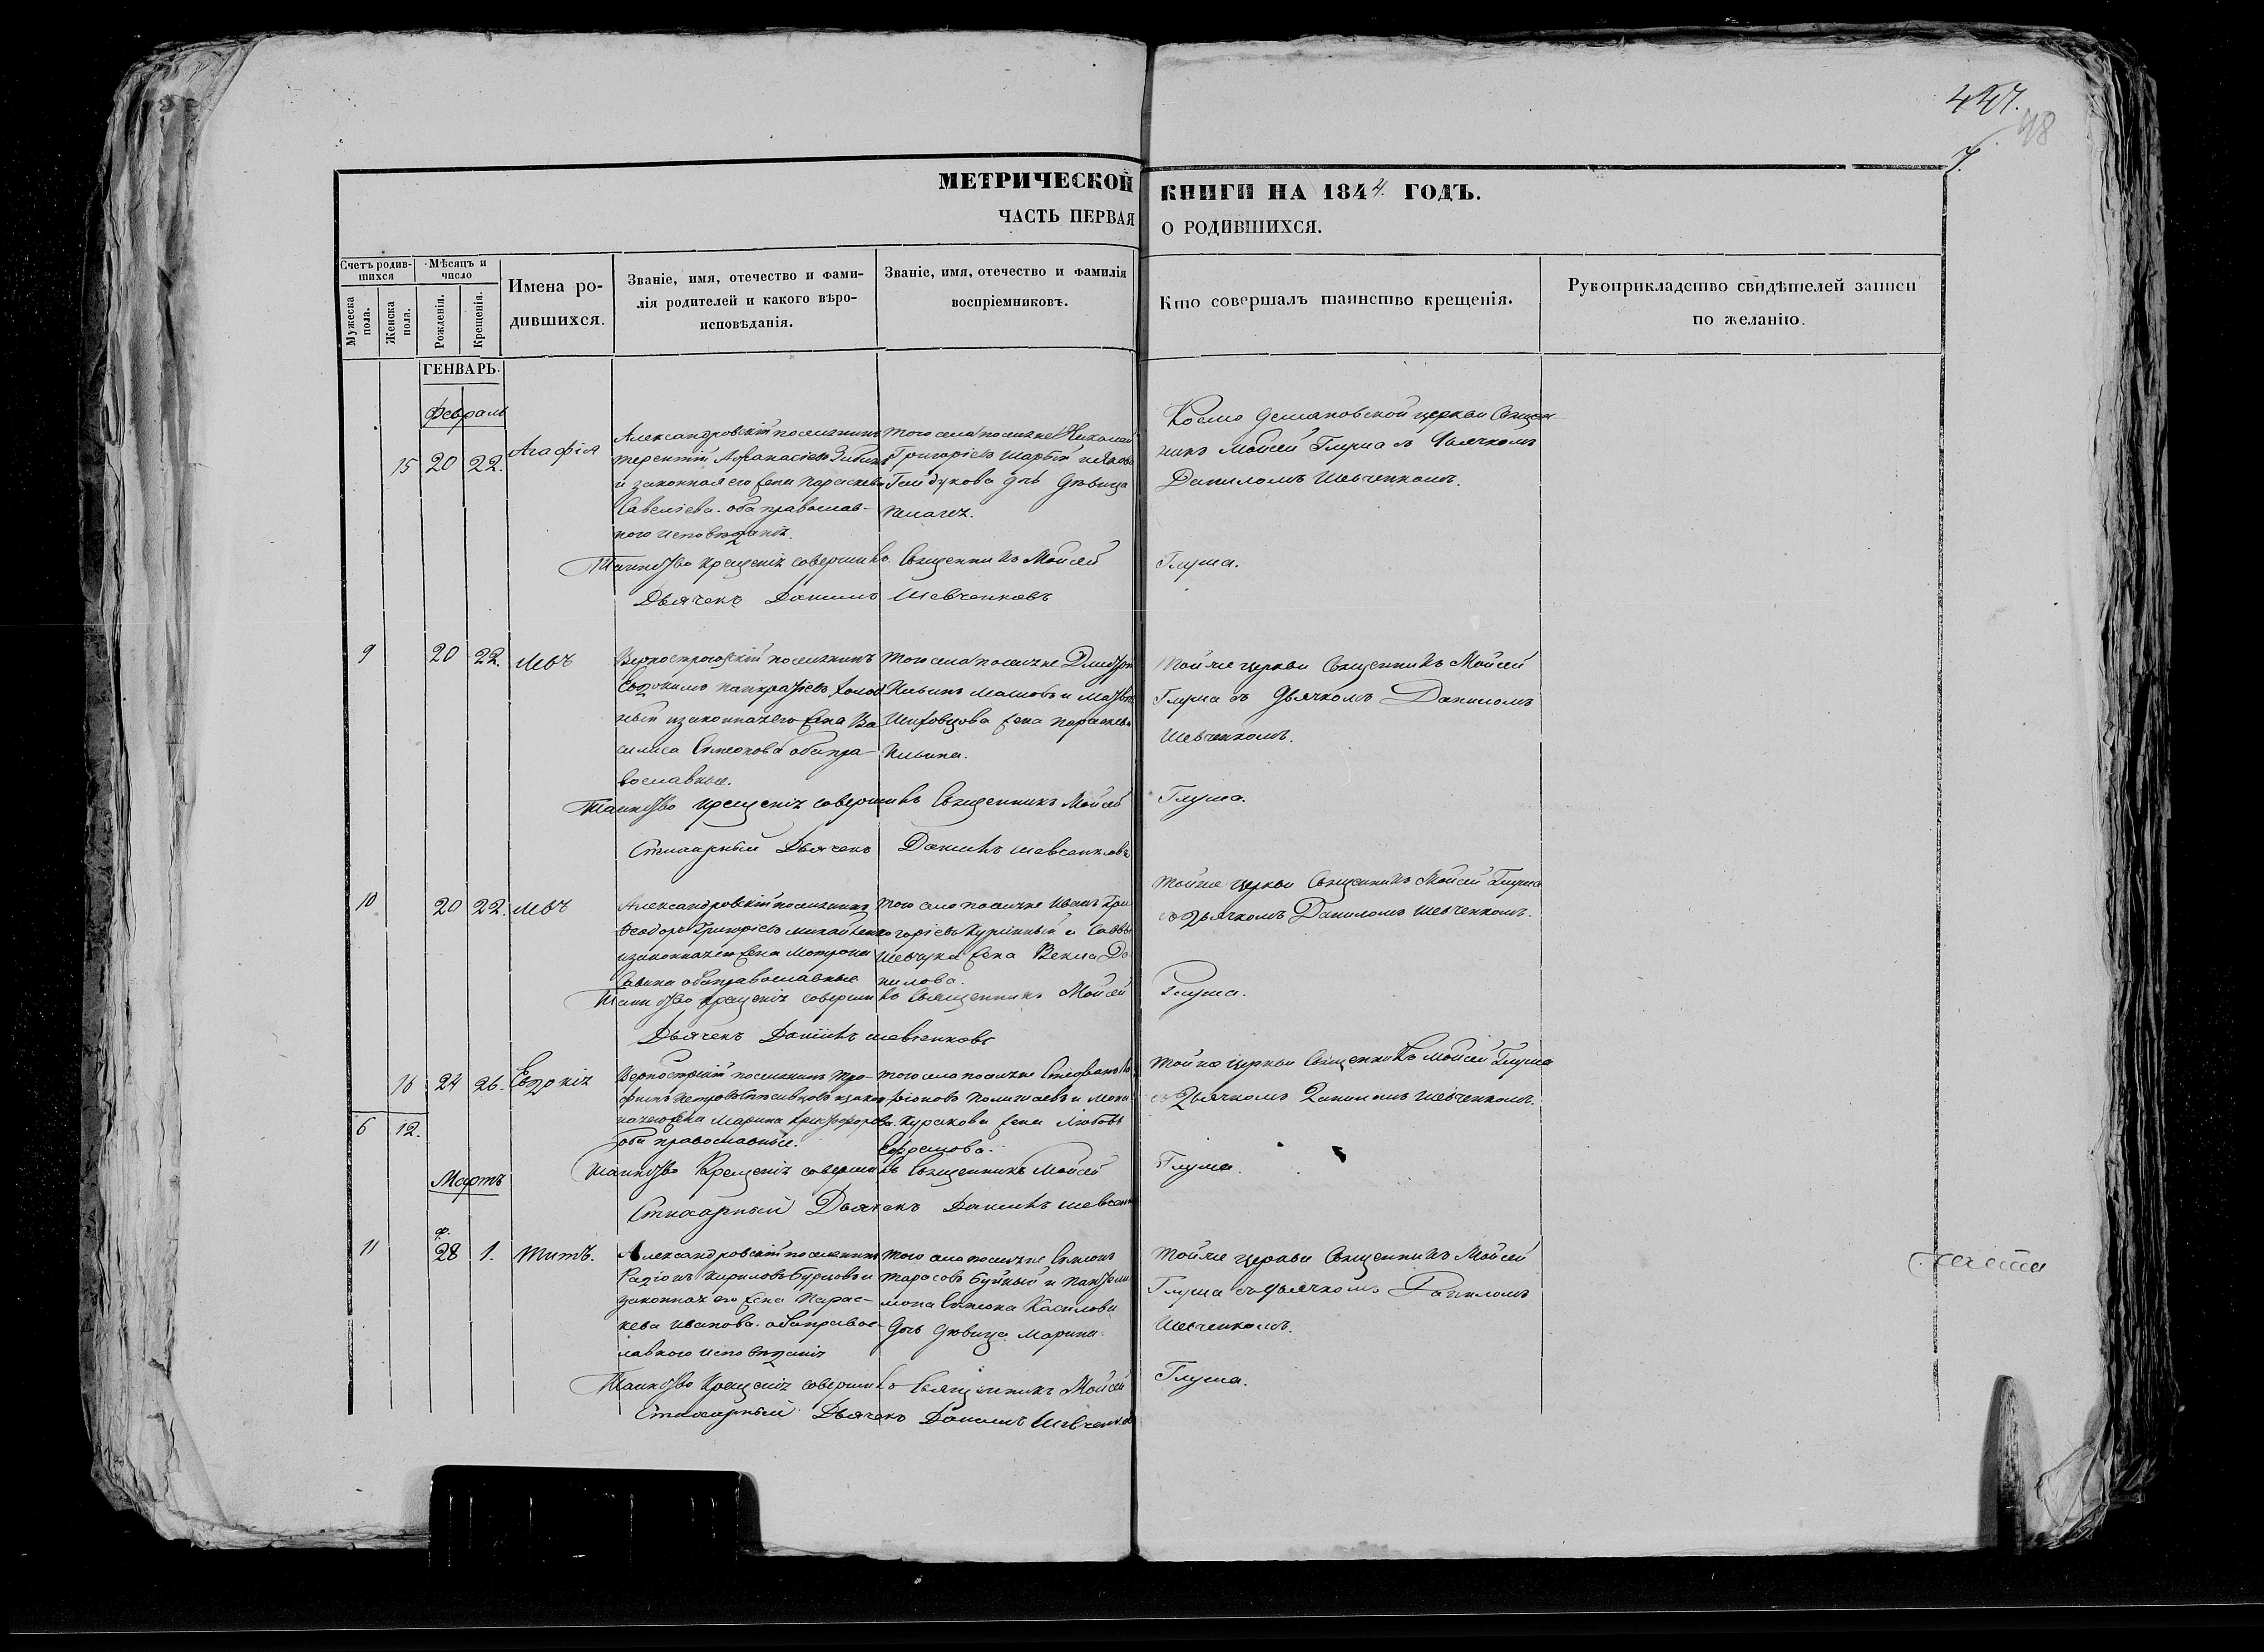 447.
48
7.
МЕТРИЧЕСКОЙ КНИГИ НА 1844. ГОДЪ.
ЧАСТЬ ПЕРВАЯ О РОДИВШИХСЯ.
Счетъ родившихся
Мужеска пола.
Женска пола.
Мѣсяцъ и число
Рожденія.
Крещенія.
Имена родившихся.
Званіе, имя, отечество и фамилія родителей и какого вѣроисповѣданія.
Званіе, имя, отечество и фамилія воспріемниковъ.
Кто совершалъ таинство крещенія.
Рукоприкладство свидѣтелей записи по желанію.
ГЕНВАРЬ.
Февраль
15 20 22. Агафія
Александровскій поселянинъ
Терентій Афанасіевъ
и законная его жена Параскева
Савеліева. оба православ-
ного исповѣданія.
того села поселяне Николай
Григорієвъ Шарый
Гайдукова дочь дѣвица
Пелагея.
Космо Деміановской церкви Священ
никъ Мойсей Глума съ дьячкомъ
Даниломъ Шевченкомъ.
Таинство крещенія совершилъ Священникъ Мойсей Глума.
Дьячекъ Данилъ Шевченковъ
9 20 22. Левъ
поселянинъ
Евдокимъ Панкратіевъ
ный и законная его жена Ва
силиса Симеонова оба пра-
вославные.
того села поселяне Дмитрій
Ильинъ
жена Параскева
Ильина.
Тойже церкви Священникъ Мойсей
Глума съ дьячкомъ Даниломъ
Шевченкомъ.
Таинство крещенія совершилъ Священникъ Мойсей Глума.
Стихарный Дьячекъ Данилъ Шевченковъ
10 20 22. Левъ
Александровскій поселянинъ
Феодоръ Григоріевъ Михайленко
и законная его жена Мотрона
Савина оба православные
того села поселяне Иванъ Гри
горіевъ Куринный и Саввы
Шевчука жена Векла Да
нилова.
Тойже церкви Священникъ Мойсей Глума
съ дьячкомъ Даниломъ Шевченкомъ.
Таинство крещенія совершилъ Священникъ Мойсей Глума.
Дьячекъ Данилъ Шевченковъ
16 24 26. Евдокія
поселянинъ Тро-
фимъ Петровъ
жена Марина Христофорова.
оба православные.
того села поселяне Стефанъ
жена Любовь
Ефремова.
Тойже церкви Священникъ Мойсей Глума
съ дьячкомъ Даниломъ Шевченкомъ.
6 12.
Таинство Крещенія совершилъ Священникъ Мойсей Глума.
Стихарный Дьячекъ Данилъ Шевченко
Мартъ
11 ф. 28 1. Титъ.
Александровскій поселянинъ
Радіонъ Кириловъ Бурцовъ и
законная его жена Парас-
кева Иванова. оба правос-
лавного исповѣданія
того села поселяне Симеонъ
Тарасовъ Буйный и
Дочь дѣвица Марина.
Тойже церкви Священникъ Мойсей
Глума съ дьячкомъ Даниломъ
Шевченкомъ.
Таинство Крещенія совершилъ Священникъ Мойсей Глума.
Стихарный Дьячекъ Данилъ Шевченков